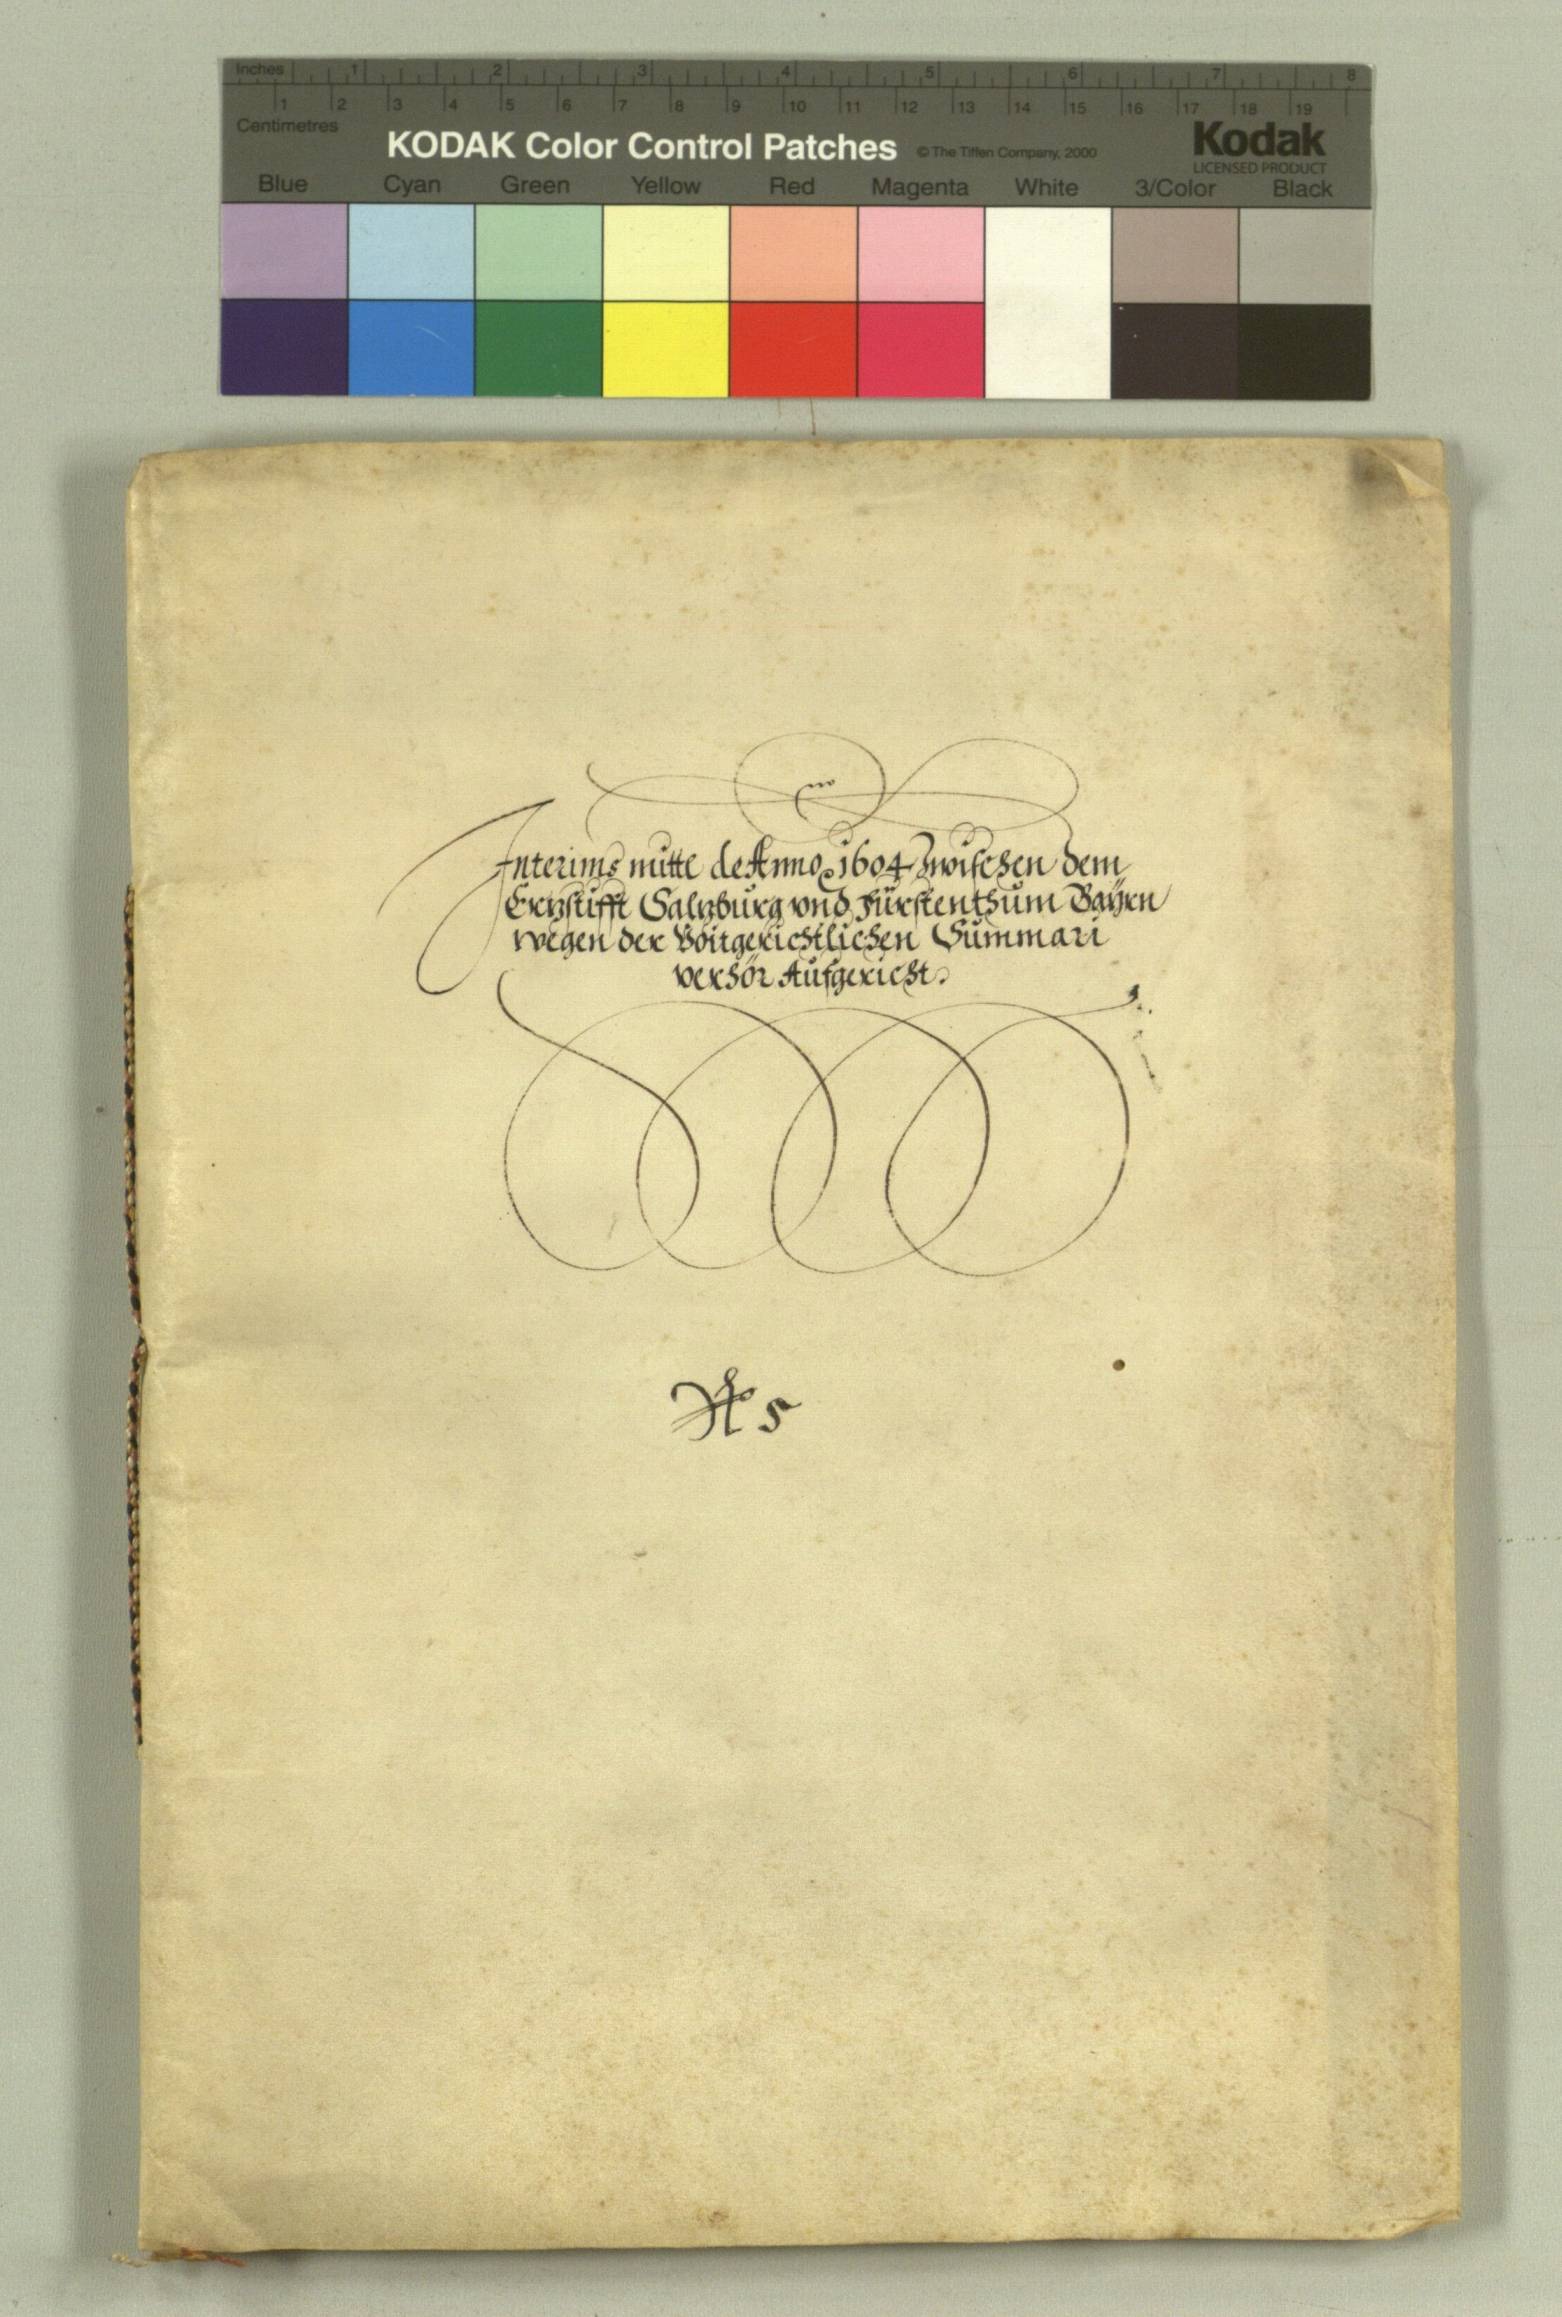 Inches 1 2 3 4 5 6 7 8
1 2 3 4 5 6 7 8 9 10 11 12 13 14 15 16 17 18 19
Centimetres
KODAK Color Control Patches © The Tiffen Company, 2000 Kodak
LICENSED PRODUCT
Blue Cyan Green Yellow Red Magenta White 3/Color Black
Interims mittl de Anno 1604 zwischen dem
Erzstifft Salzburg vnd Fürstenthum Bayrn
wegen der Voitgerichtlichen Summari
verhör Aufgericht.
5